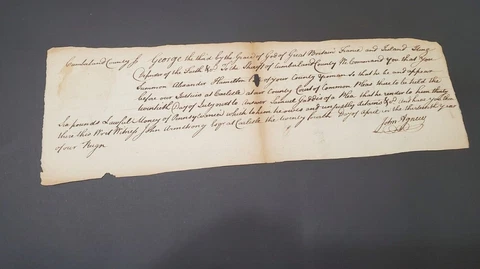 Cumberland County Ss George the third by the Grace of God of Great Brittain France and Ireland King
Defender of the Faith &c To the Sheriff of Cumberland County We Command you that you
Summon Alexander Hamilton of your County Yeoman so that he be and appear
before our Justices at Carlisle at our County Court of Common Pleas there to be held the
twentieth Day of July next to answer Samuel Gaddis of a Plea that he render to him thirty
six pounds Lawfull Money of Pennsylvania which to him he owes and unjustly detains &c and have you then
there this Writ Witness John Armstrong Esqr at Carlisle the twenty fourth Day of April in the Year
of our Reign
John Agnew